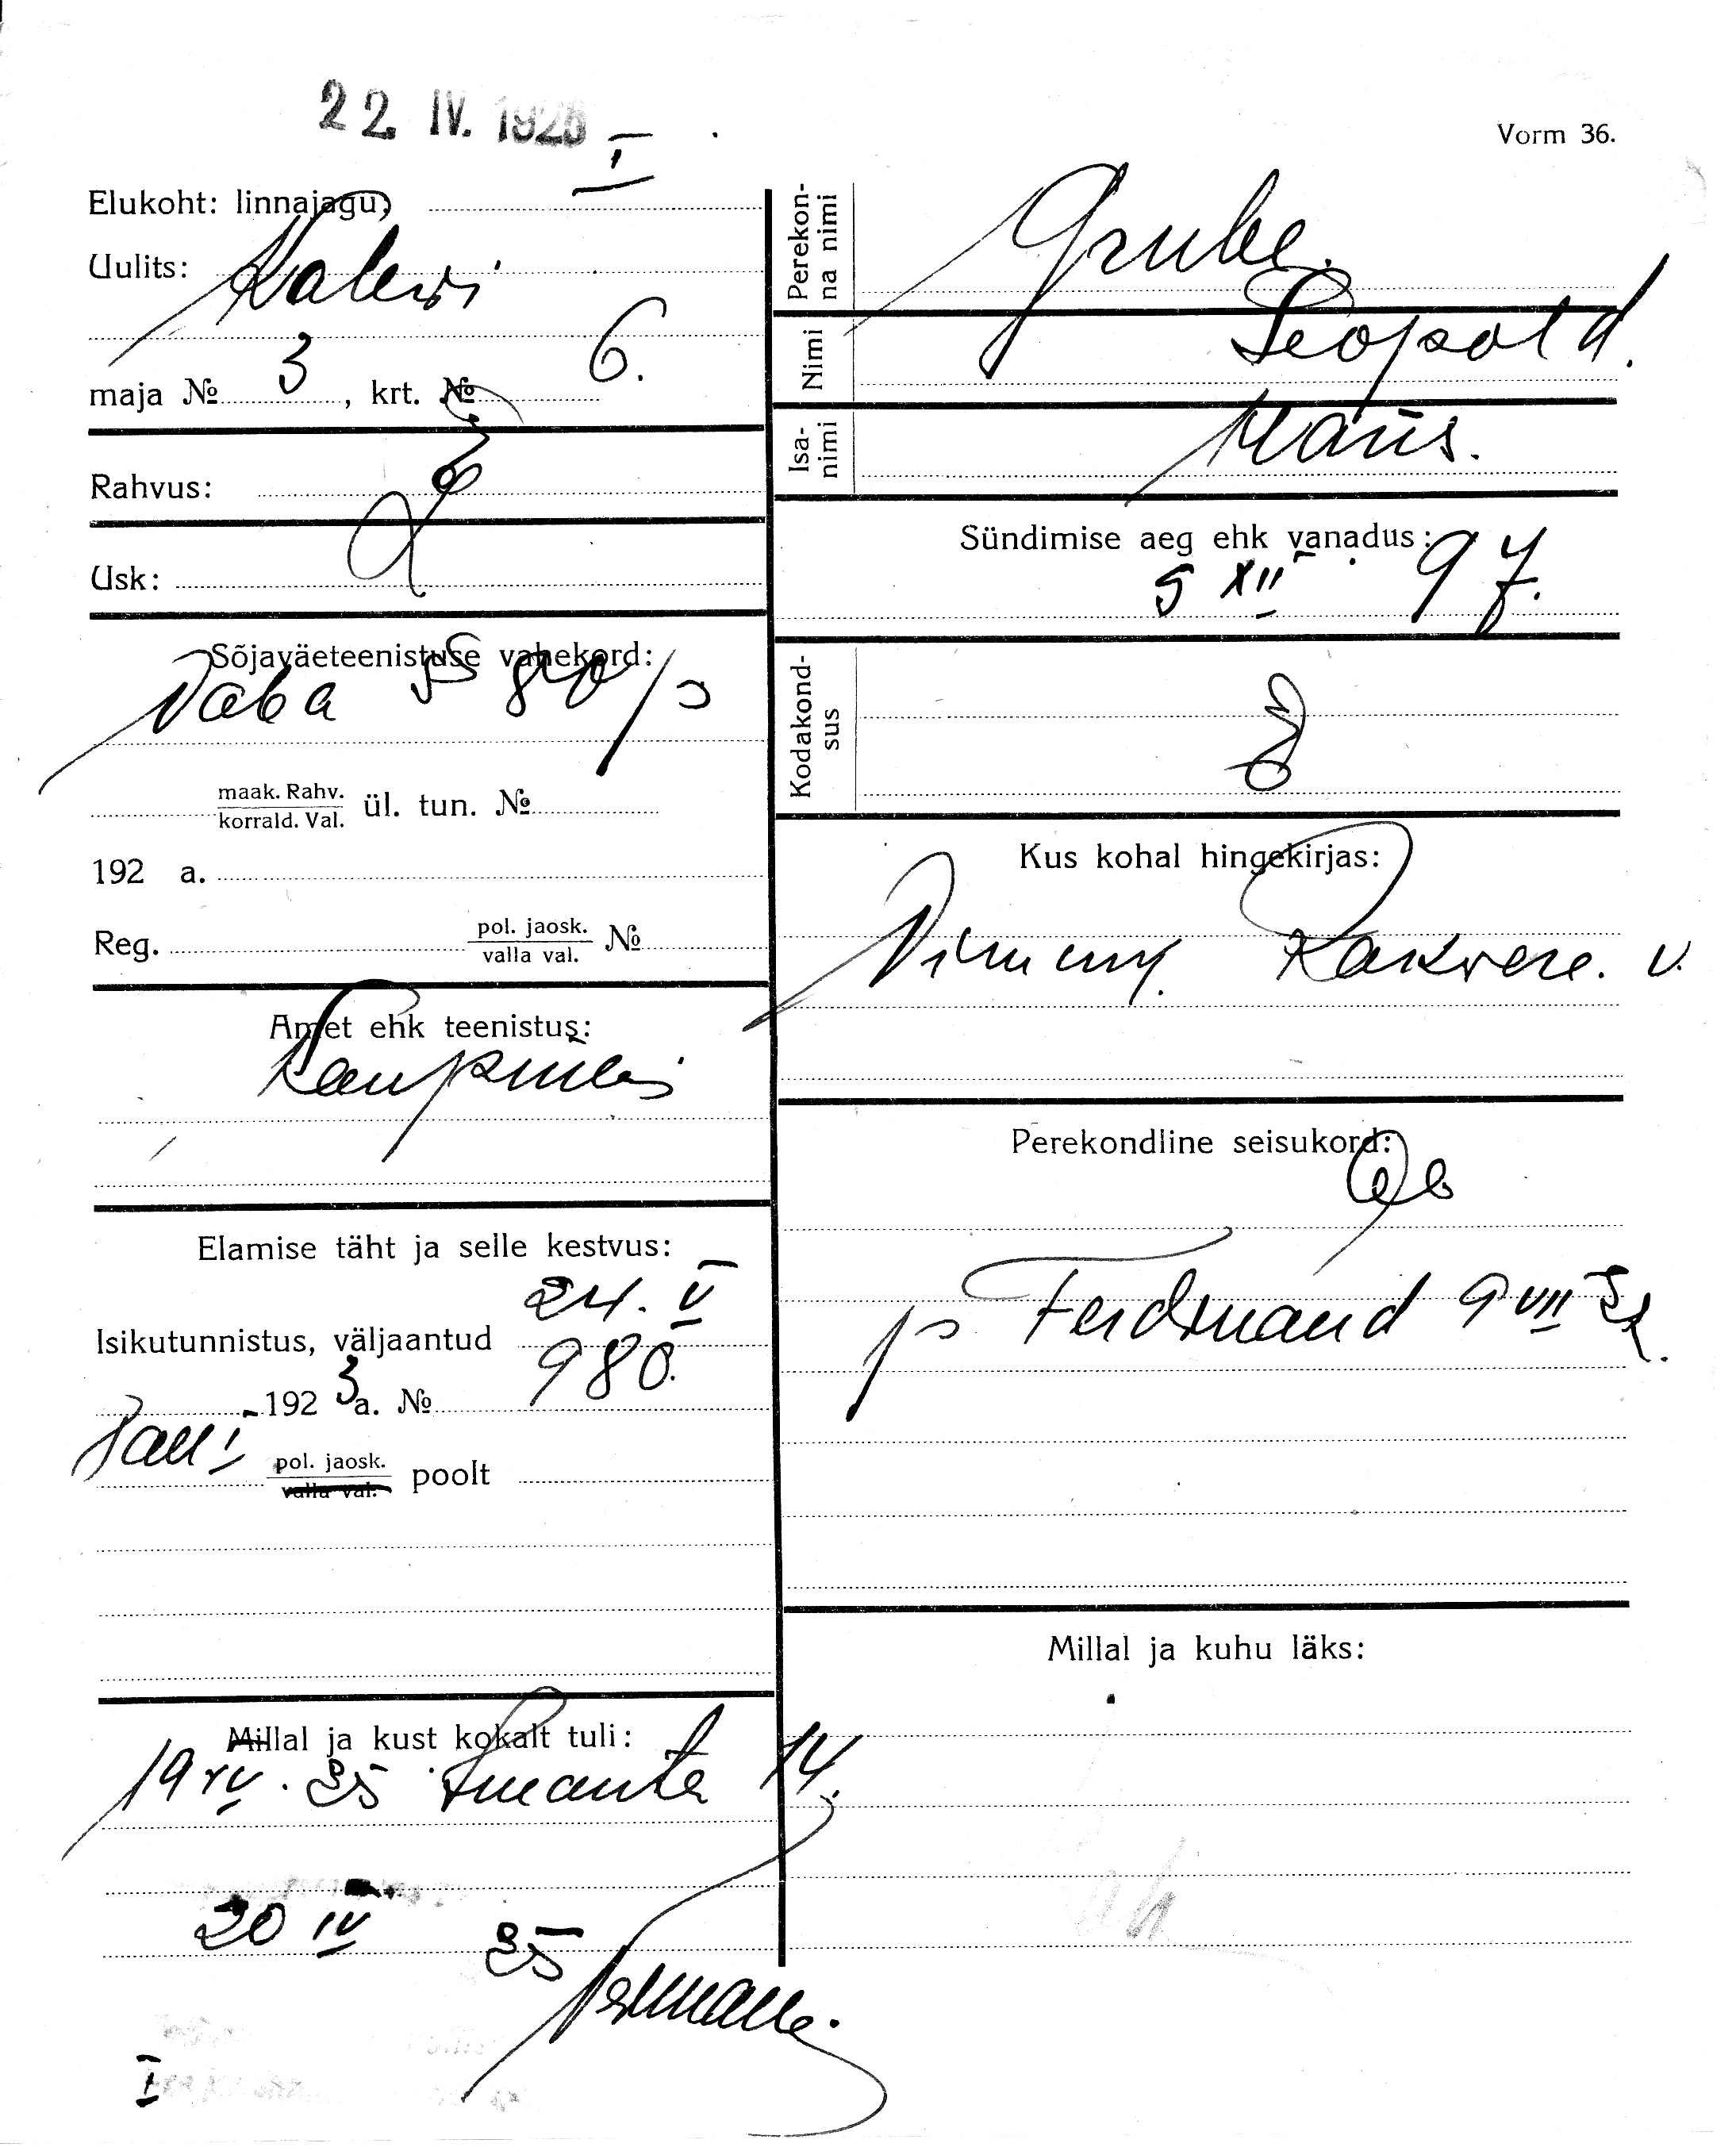 22 IV. 1925
I
Vorm 36.
Elukoht: linnajagu,
Uulits: Kalevi
maja № 3, krt. № 6.
Rahvus:
Usk:
Sõjaväeteenistuse vahekord:
Vaba
maak. Rahv.
korrald. Val. ül. tun. №
192 a.
Reg. pol. jaosk.
valla val. №
Amet ehk teenistus:
Kaupmees
Elamise täht ja selle kestvus:
24. V
Isikutunnistus, väljaantud
192 3 a. № 980.
Tall I pol. jaosk.
valla val. poolt
Millal ja kust kohalt tuli:
19 IV. 25 14.
20 IV 25
I
Perekonna nimi Grube.
Nimi Leopold.
Isanimi
Sündimise aeg ehk vanadus:
5 XII 97.
Kodakondsus
Kus kohal hingekirjas:
Virumy. Rakvere. v.
Perekondline seisukord:
Ab
p Ferdinand 9 VII
Millal ja kuhu läks: